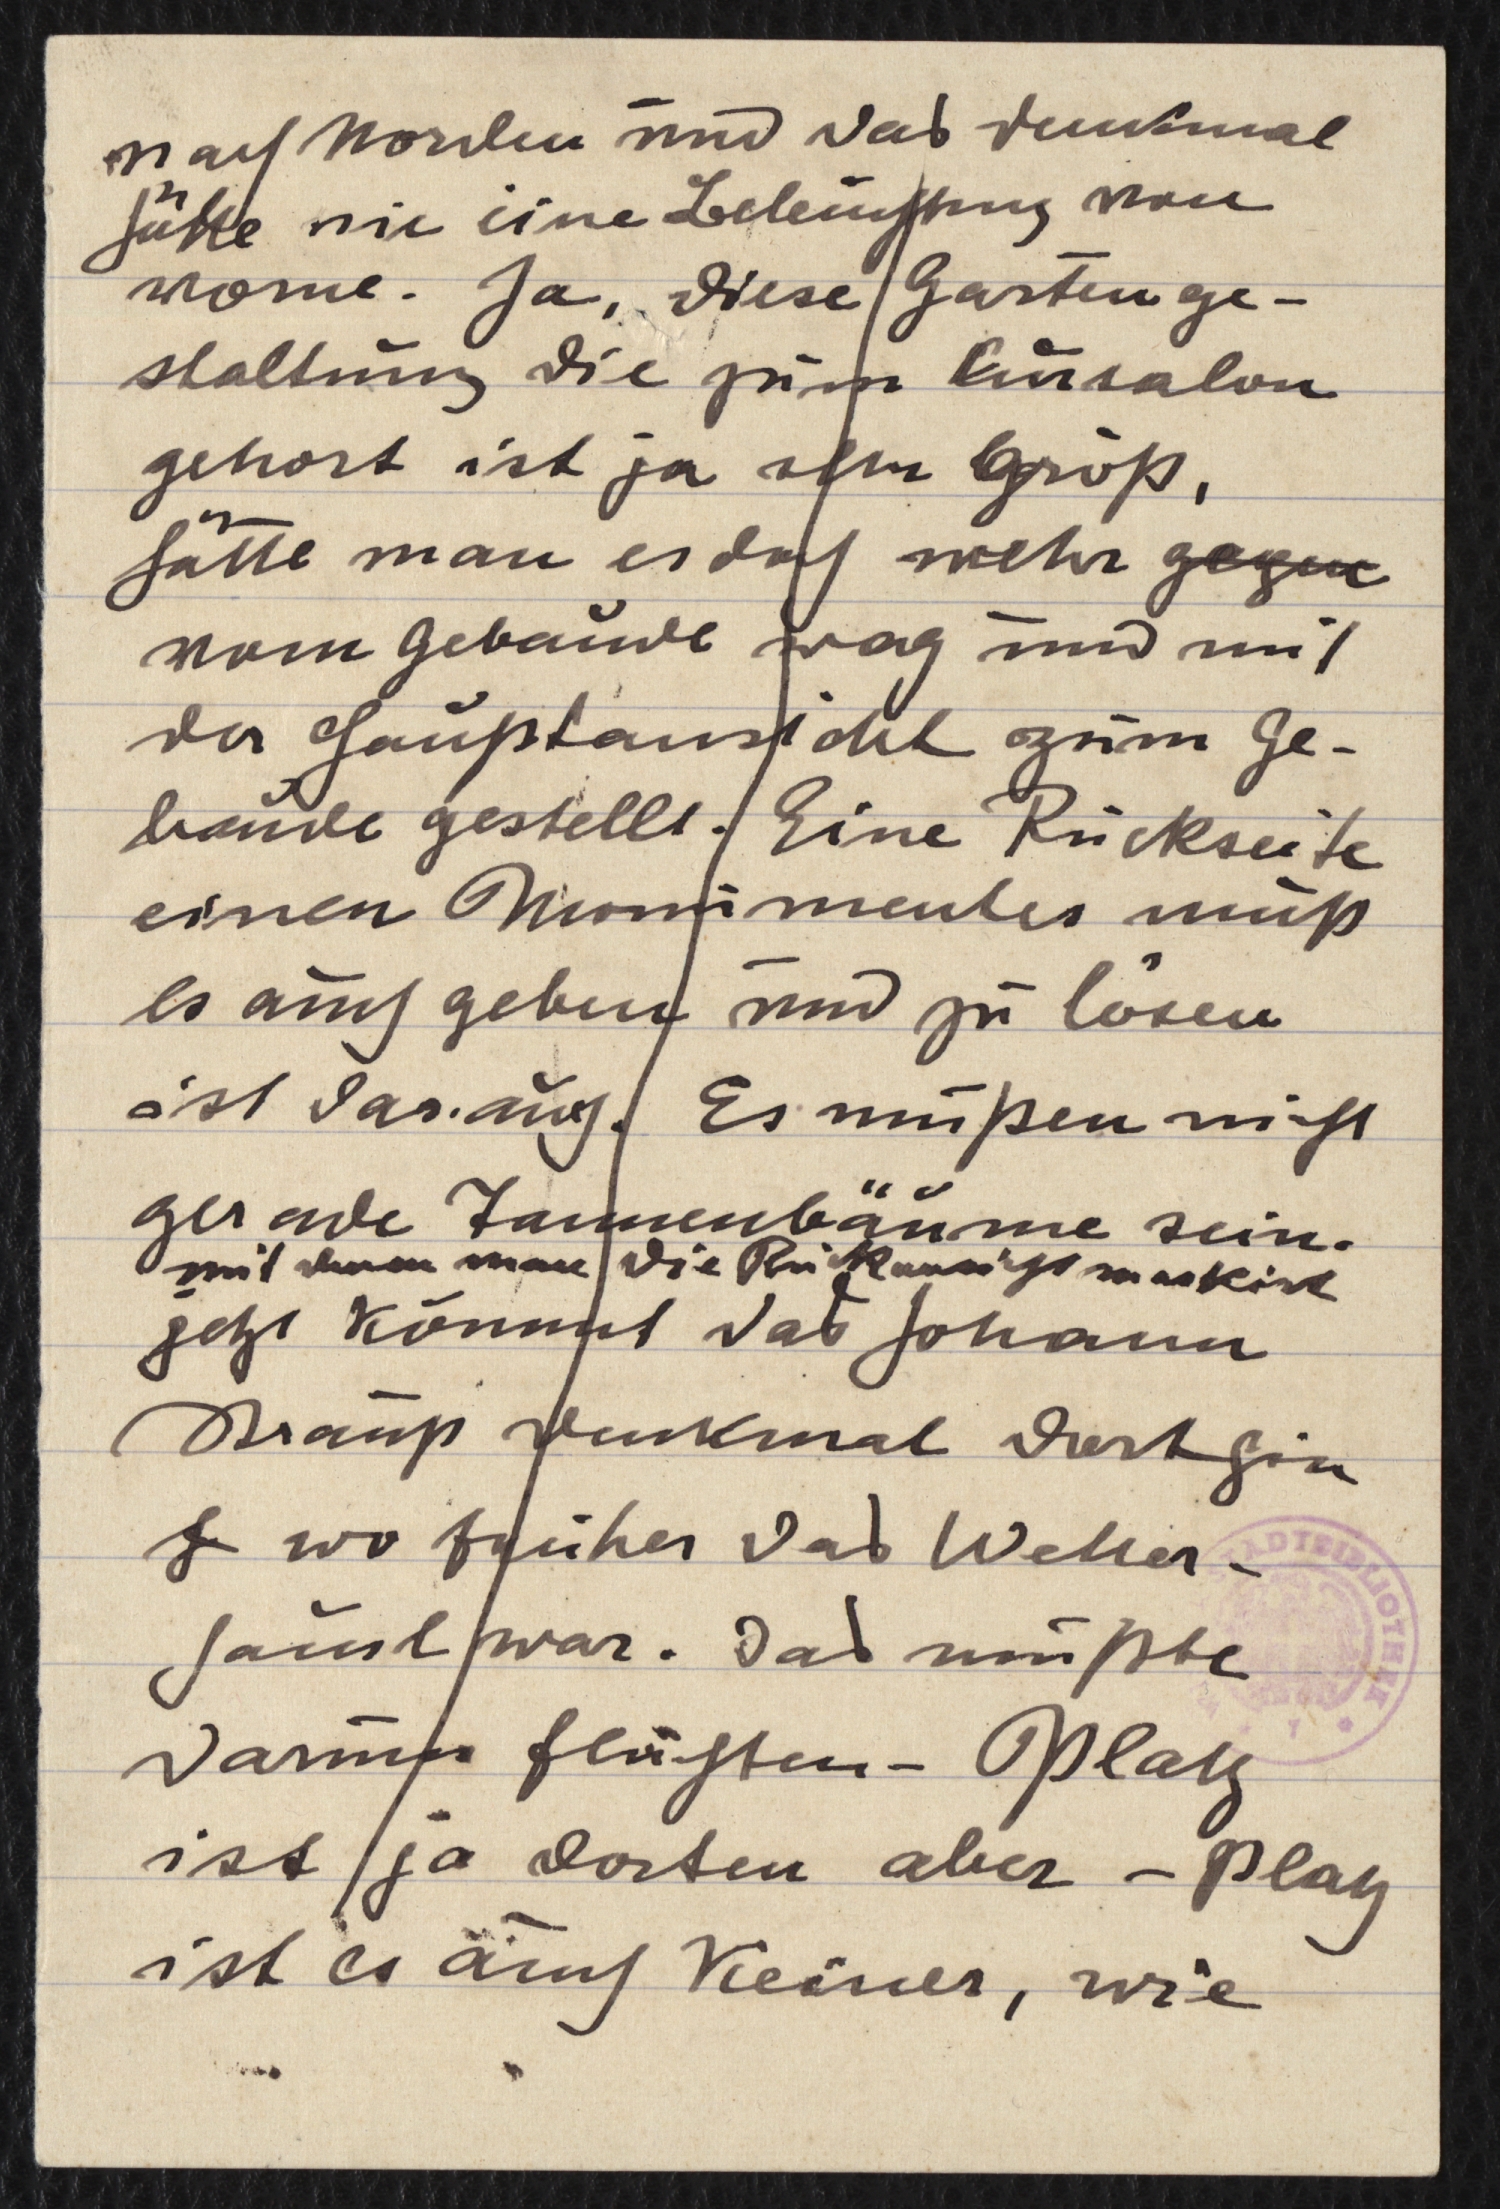 nach Norden und das Denkmal
hätte nie eine Beleuchtung von
vorne. Ja, diese Gartenge-
staltung die zum Cursalon
gehort ist ja sehr Groß,
hätte man es doch mehr gegen
vom Gebaude wag und mit
der Hauptansicht zum Ge-
bäude gestellt. Eine Rückseite
einen Monumentes muß
es auch geben und zu lösen
ist das auch. Es müßen nicht
gerade Tannenbäume sein.
mit denen man die Rückansicht maskirt
jetzt kömmt das Johann
Strauß Denkmal dorthin
wo früher das Wetter-
häusl war. Das müßte
darum flüchten – Platz
ist ja dorten aber – Platz
ist es auch Keiner, wie
STADTBIBLIOTHEK